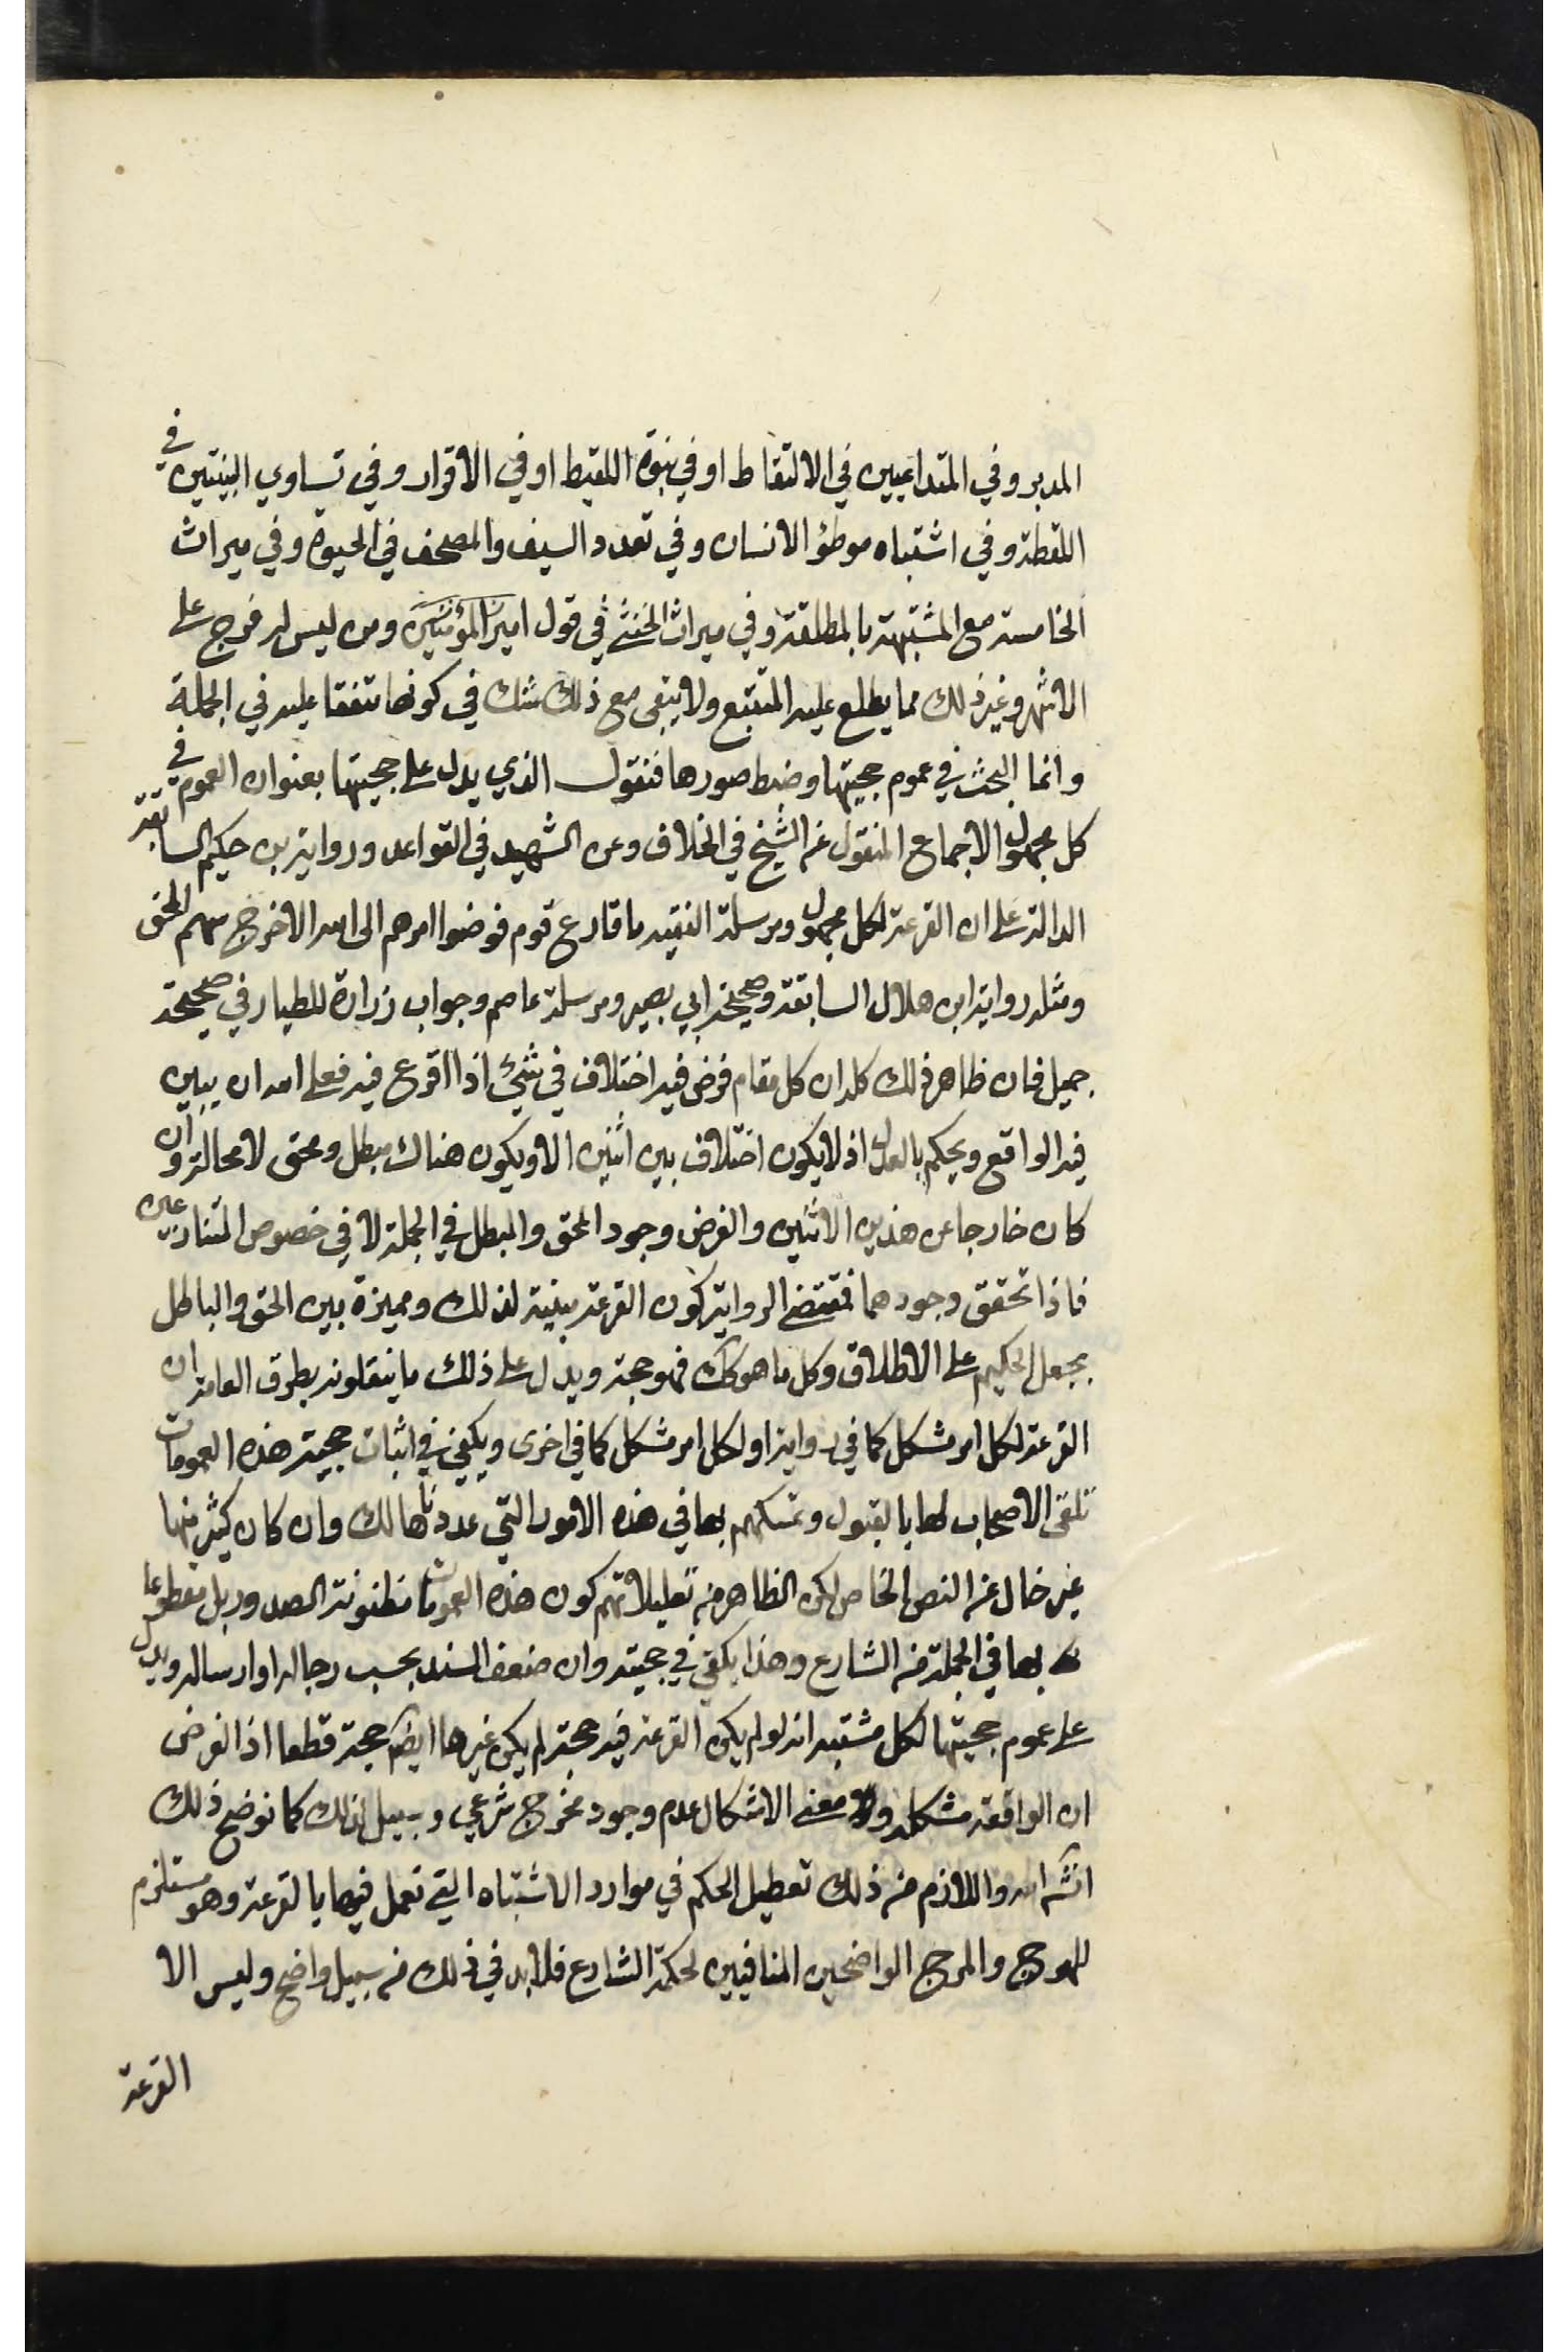 المدبر وفي المتداعيين في الالتقاط او في بنوة اللقيط او في الاقرار وفي تساوي البينتين في
اللقطة وفي اشتباه موطؤ الانسان وفي تعدد السيف والمصحف في الحبوة وفي ميراث
الخامسة مع المشتبهة بالمطلقة وفي ميراث الخنثى في قول امير المؤمنين ومن ليس له فرج على
الاشهر وغير ذلك مما يطلع عليه المتتبع ولا يبقى مع ذلك شك في كونها متفقا عليه في الجملة
وانما البحث في عموم حجيتها وضبط صورها فنقول الذي يدل على حجيتها بعنوان العموم في
كل مجهول الاجماع المنقول عن الشيخ في الخلاف وعن الشهيد في القواعد ورواية بن حكيم السابقة
الدالة على ان القرعة لكل مجهول ومرسلة الفقيه ما قارع قوم فوضوا امرهم الى الله الا خرج سهم المحق
ومثله رواية ابن هلال السابقة وصحيحة ابي بصير ومرسلة عاصم وجواب زرارة للطيار في صحيحة
جميل فان ظاهر ذلك كله ان كل مقام فرض فيه اختلاف في شئ اذا اقرع فيه فعلى الله ان يبين
فيه الواقع ويحكم بالعدل اذ لا يكون اختلاف بين اثنين الا ويكون هناك مبطل ومحق لا محالة وان
كان خارجا عن هذين الاثنين والفرض وجود المحق والمبطل في الجملة لا في خصوص المتنازعين
فاذا تحقق وجودهما فمقتضى الرواية كون القرعة مبينة لذلك ومميزة بين الحق والباطل
بجعل الحكيم على الاطلاق وكل ما هو كك فهو حجة ويدل على ذلك ما ينقلونه بطرق العامة ان
القرعة لكل امر مشكل كما في رواية او لكل امر مشكل كما في اخرى ويكفي في اثبات حجية هذه العمومات
تلقى الاصحاب لها بالقبول وتمسكهم بها في هذه الامور التي عددناها لك وان كان كثير منها
غير خال عن النص الخاص لكن الظاهر من تعليلاتهم كون هذه العمومات مظنونة الصدور بل مقطوعا
بها في الجملة من الشارع وهذا يكفي في حجيته وان ضعف السند بحسب رجاله او ارساله ويدل
على عموم حجيتها لكل مشتبه انه لو لم يكن القرعة فيه حجة لم يكن غيرها ايضا حجة قطعا اذ الفرض
ان الواقعة مشكلة ومعنى الاشكال عدم وجود مخرج شرعي وسبيل لذلك كما نوضح ذلك
انشه الله واللازم من ذلك تعطيل الحكم في موارد الاشتباه التي نعمل فيها بالقرعة وهو مستلزم
للهرج والمرج الواضحين المنافيين لحكمة الشارع فلا بد في ذلك من سبيل واضح وليس الا
القرعة